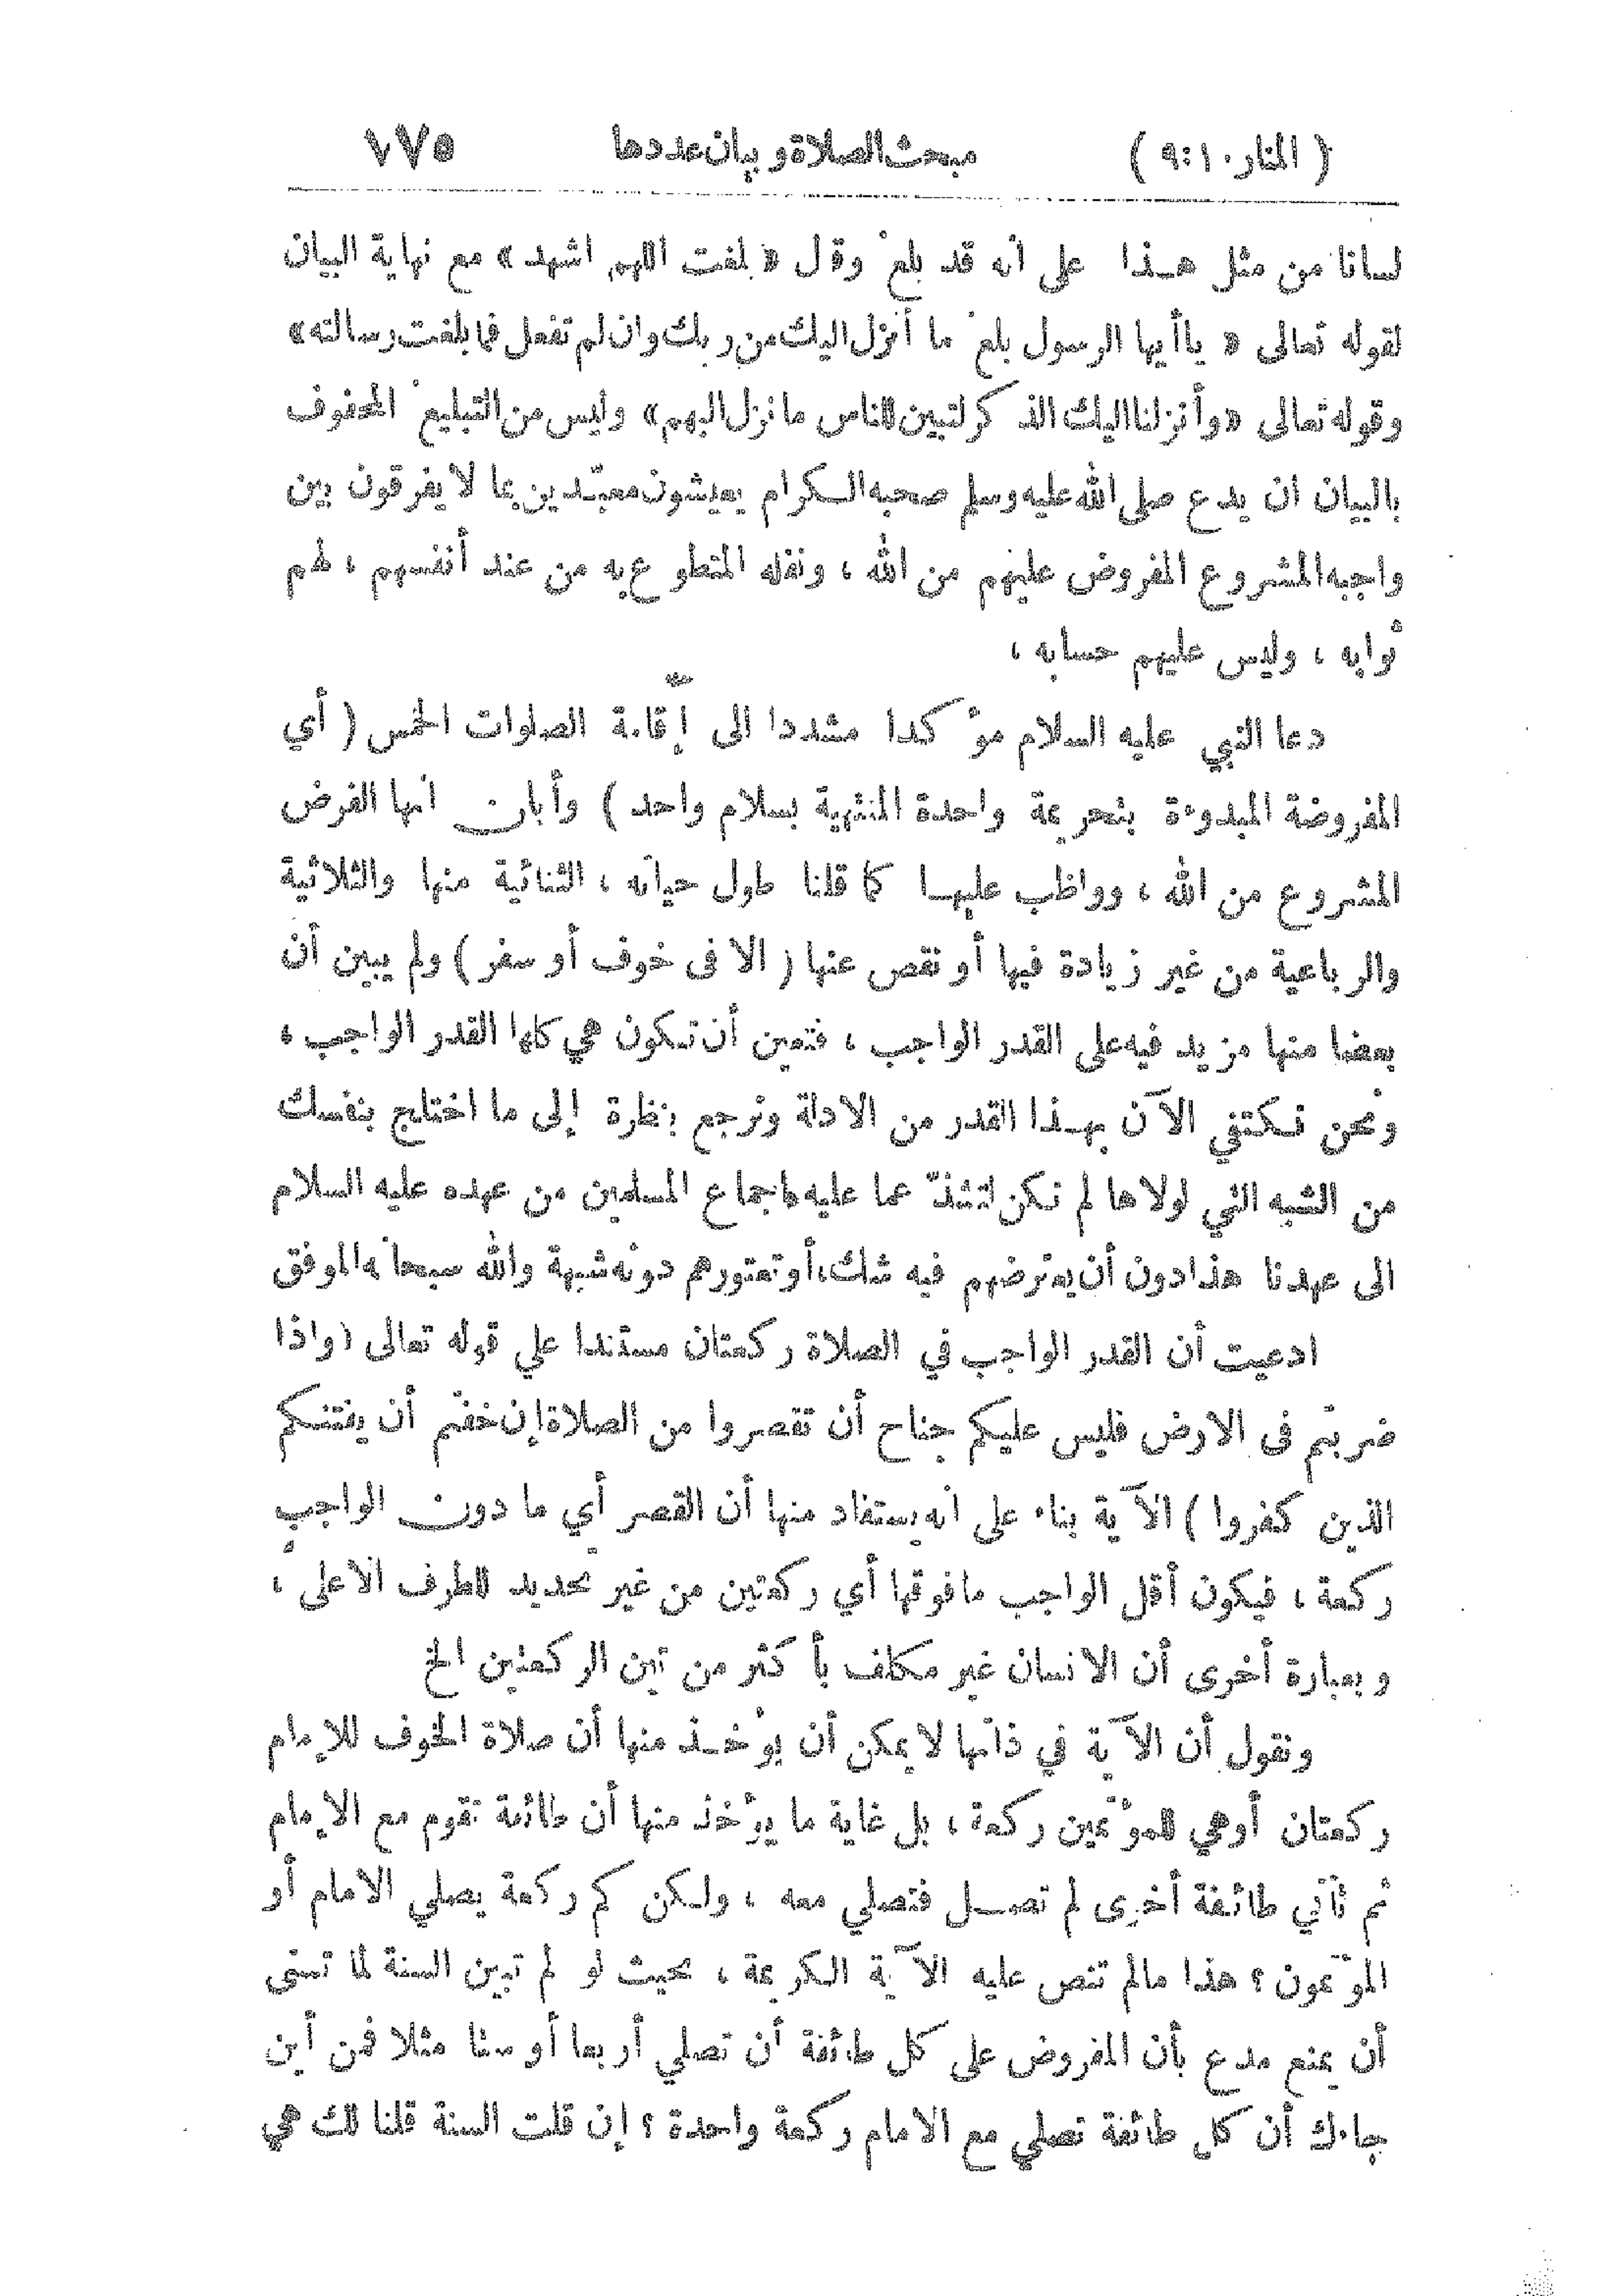 ( المنار ١٠ : ٩ ) مبحث الصلاة وبيان عددها ٧٧٥
لسانا من مثل هـذا على أنه قد بلغ وقال « بلغت اللهم اشهد » مع نهاية البيان
لقوله تعالى « ياأيها الرسول بلغ ما أنزل اليك من ربك وان لم تفعل فما بلغت رسالته »
وقوله تعالى « وأنزلنا اليك الذكر لتبين للناس ما نزل اليهم » وليس من التبليغ المحفوف
بالبيان ان يدع صلى الله عليه وسلم صحبه الكرام يعيشون معبّدين بما لا يفرقون بين
واجبه المشروع المفروض عليهم من الله ، ونفله المتطوع به من عند أنفسهم ، لهم
ثوابه ، وليس عليهم حسابه ،
دعا النبي عليه السلام مؤكدا مشددا الى إقامة الصلوات الخمس ( أي
المفروضة المبدوءة بتحريمة واحدة المنتهية بسلام واحد ) وأبان انها الفرض
المشروع من الله ، وواظب عليهـا كما قلنا طول حياته ، الثنائية منها والثلاثية
والرباعية من غير زيادة فيها أو نقص عنها ( الا فى خوف أو سفر ) ولم يبين أن
بعضا منها مزيد فيه على القدر الواجب ، فتعين أن تكون هي كلها القدر الواجب ،
ونحن نكتفي الآن بهـذا القدر من الادلة ونرجع بنظرة إلى ما اختلج بنفسك
من الشبه التي لولاها لم تكن لتشذّ عما عليه اجماع المسلمين من عهده عليه السلام
الى عهدنا هذا دون أن يعترضهم فيه شك ، أو تعتورهم دونه شبهة والله سبحانه الموفق
ادعيت أن القدر الواجب في الصلاة ركعتان مستندا علي قوله تعالى ( واذا
ضربتم فى الارض فليس عليكم جناح أن تقصروا من الصلاة إن خفتم أن يفتنكم
الذين كفروا ) الآية بناء على انه يستفاد منها أن القصر أي ما دون الواجب
ركعة ، فيكون أقل الواجب ما فوقها أي ركعتين من غير تحديد للطرف الاعلى ،
وبعبارة أخرى أن الانسان غير مكلف بأكثر من تين الركعتين الخ
ونقول أن الآية في ذاتها لا يمكن أن يؤخـذ منها أن صلاة الخوف للإمام
ركعتان أو هي للمؤتمين ركعة ، بل غاية ما يؤخذ منها أن طائفة تقوم مع الإمام
ثم تأتي طائفة أخرى لم تصـل فتصلي معه ، ولكن كم ركعة يصلي الامام أو
المؤتمون ؟ هذا مالم تنص عليه الآية الكريمة ، بحيث لو لم تبين السنة لما تسنى
أن يمنع مدع بأن المفروض على كل طائفة أن تصلي أربعا أو ستا مثلا فمن أين
جاءك أن كل طائفة تصلي مع الامام ركعة واحدة ؟ إن قلت السنة قلنا لك هي